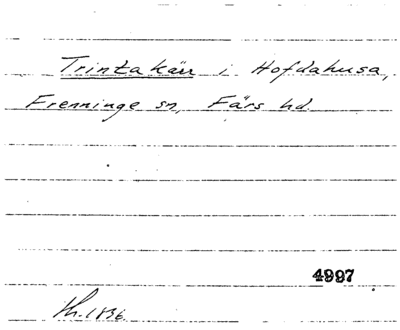 Trinta kärr i Hofdahusa,
Frenninge sn, Färs hd.
4997
Th. 1836